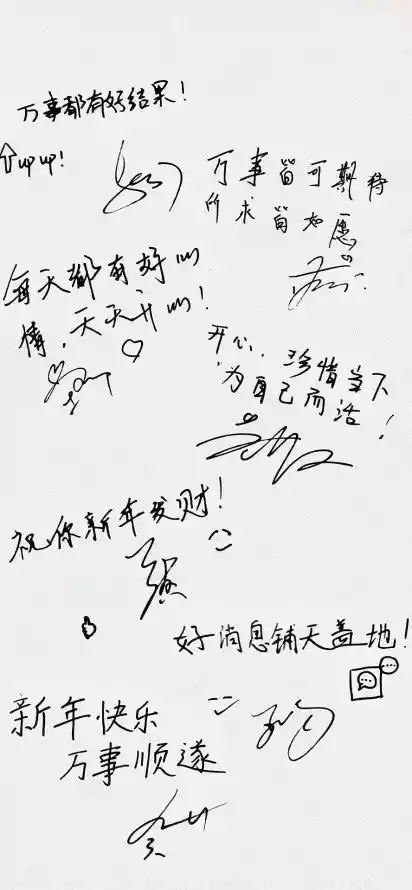 万事都有好结果！
up up!
万事皆可期待
所求皆如愿。
每天都有好心
情，天天开心！
开心，珍惜当下
为自己而活！
祝你新年发财！
好消息铺天盖地！
新年快乐
万事顺遂